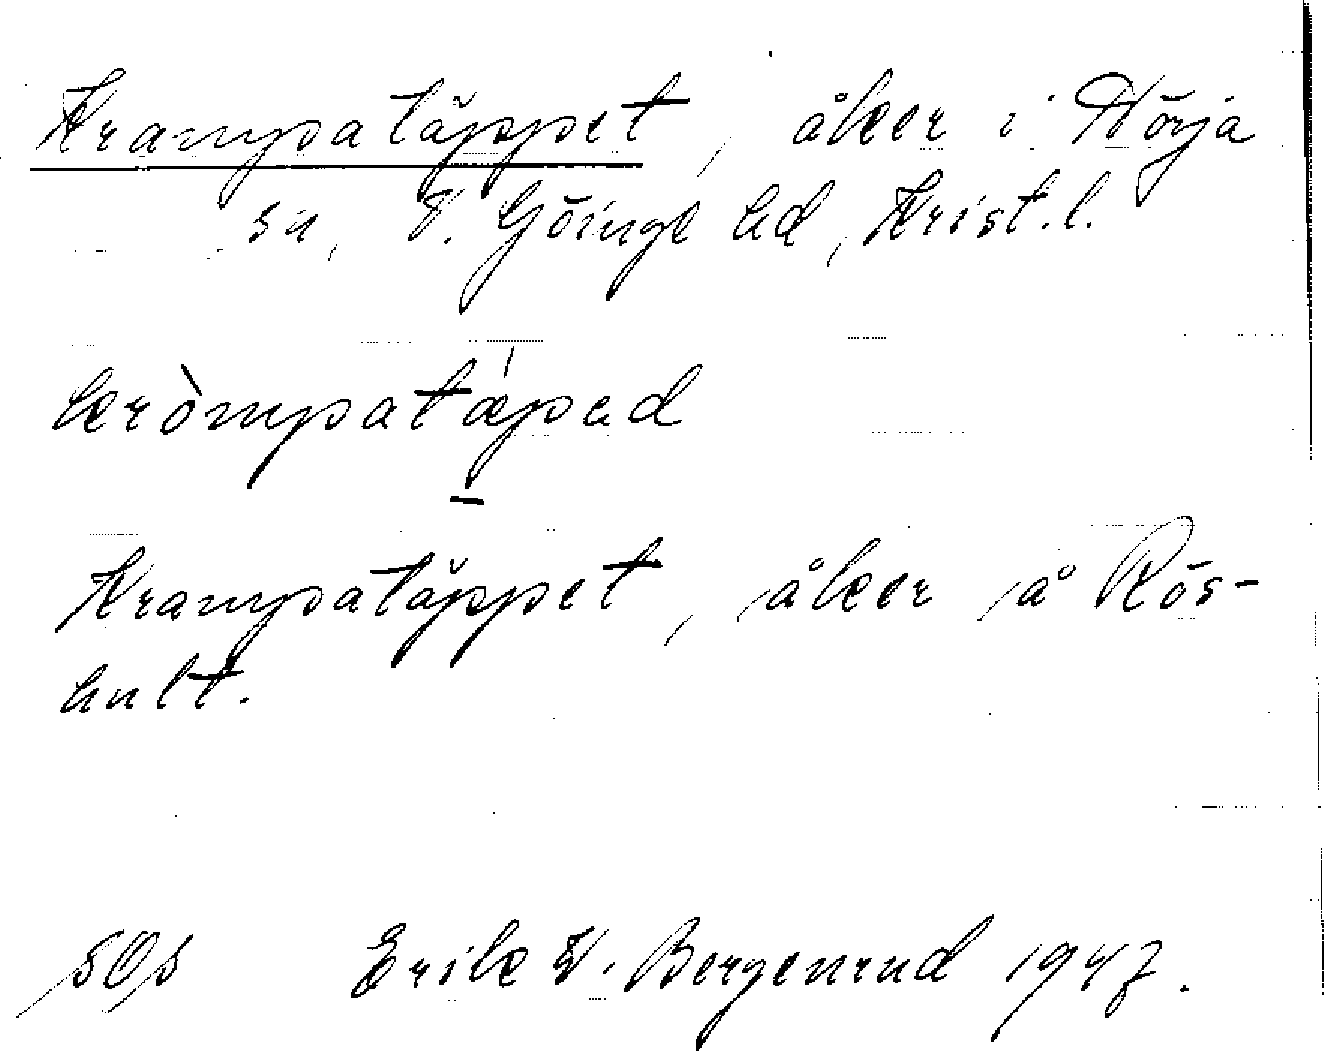 Krampatäppet, åker i Hörja
sn, V. Göinge hd, Krist.l.
kròmpatæ̀pəd
Krampatäppet, åker å Rös-
hult.
Erik W. Bergenrud 1947.